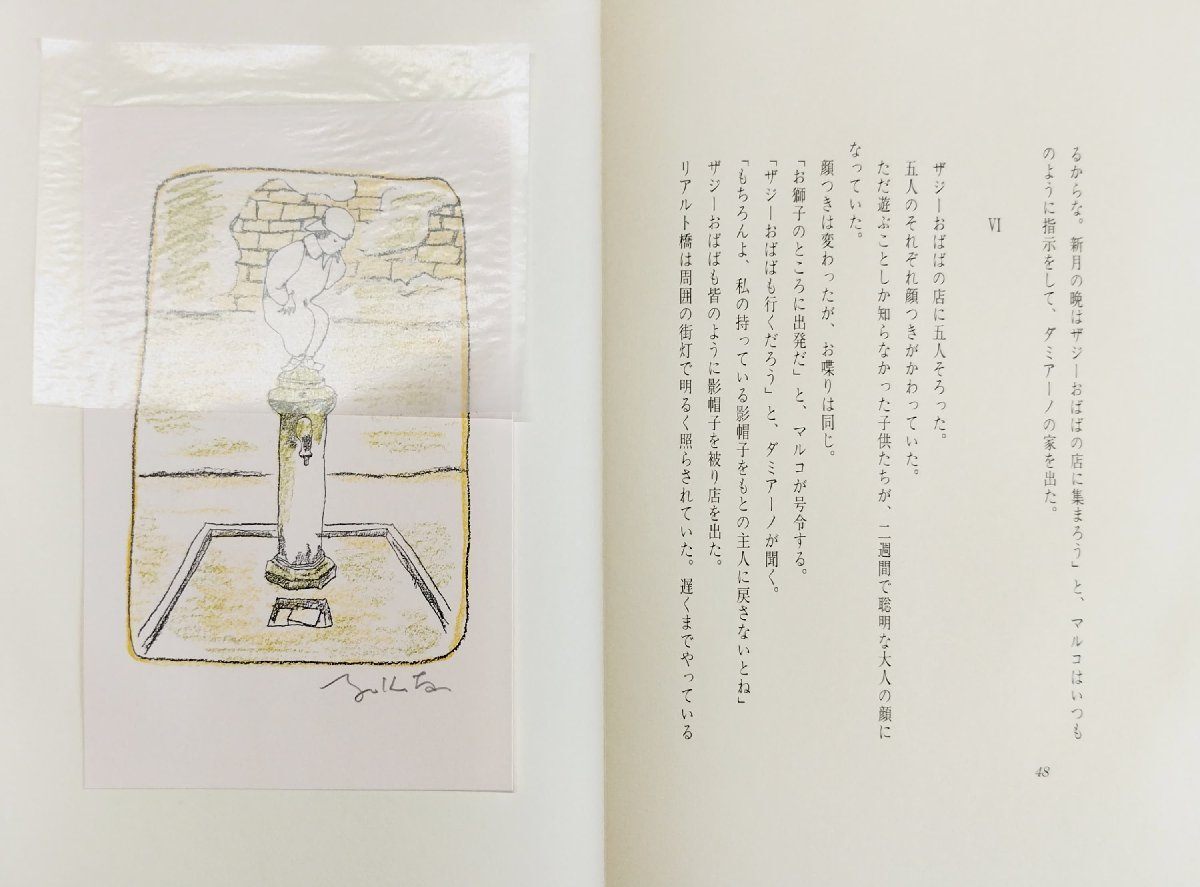 るからな。新月の晩はザジーおばばの店に集まろう」と、マルコはいつも
のように指示をして、ダミアーノの家を出た。
VI
ザジーおばばの店に五人そろった。
五人のそれぞれ顔つきがかわっていた。
ただ遊ぶことしか知らなかった子供たちが、二週間で聡明な大人の顔に
なっていた。
顔つきは変わったが、お喋りは同じ。
「お獅子のところに出発だ」と、マルコが号令する。
「ザジーおばばも行くだろう」と、ダミアーノが聞く。
「もちろんよ、私の持っている影帽子をもとの主人に戻さないとね」
ザジーおばばも皆のように影帽子を被り店を出た。
リアルト橋は周囲の街灯で明るく照らされていた。遅くまでやっている
48